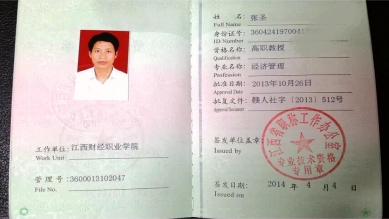 工作单位: 江西财经职业学院
Work Unit
管理号: 3600013102047
File No.
姓名: 张圣
Full Name
身份证号: 360424197004
ID Number
资格名称: 高职教授
Qualification
专业名称: 经济管理
Profession
批准日期: 2013年10月26日
Approval Date
批复文号: 赣人社字〔2013〕512号
Approval Document
签发单位盖章:
Issued by
江西省职称工作办公室
专业技术资格
专用章
签发日期: 2014 年 4 月 4 日
Issued on